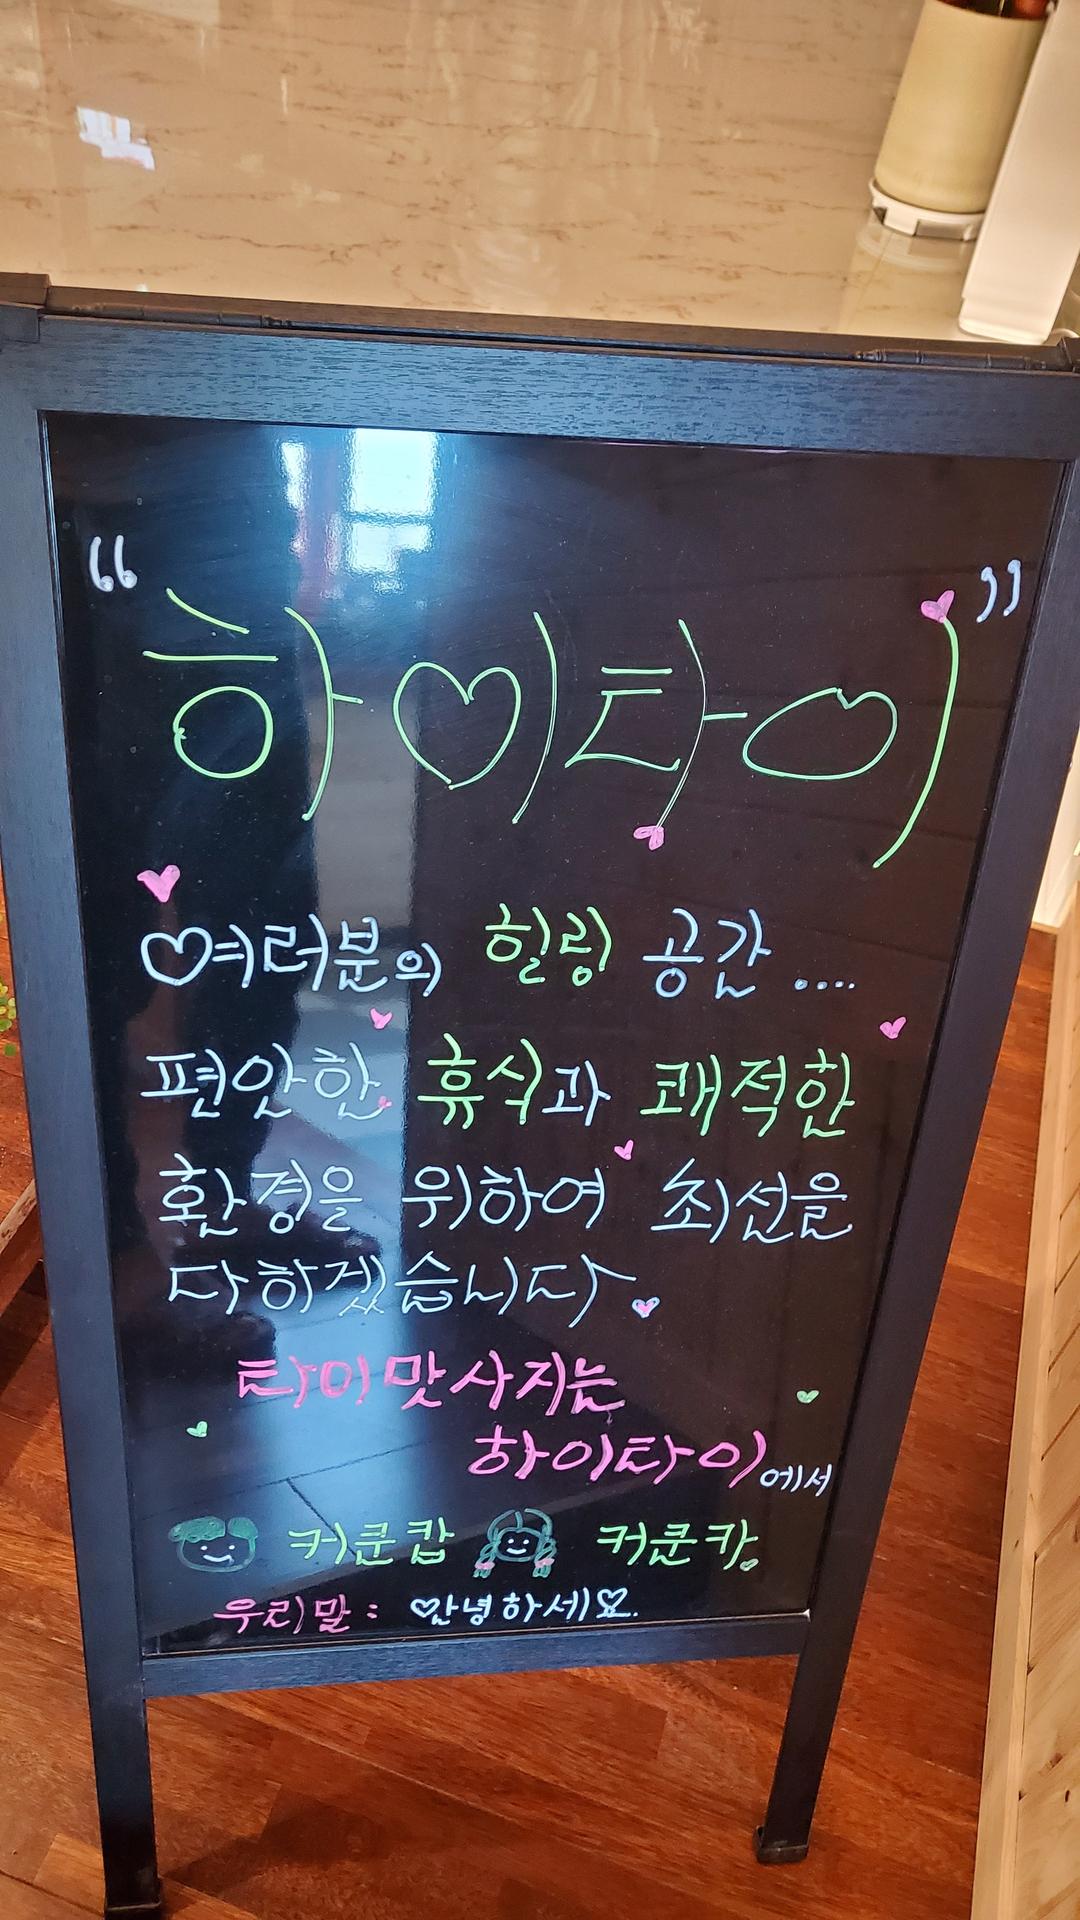 “하이타이”
여러분의 힐링 공간 ....
편안한 휴식과 쾌적한
환경을 위하여 최선을
다하겠습니다
타이맛사지는
하이타이에서
커쿤캅 커쿤카
우리말 : 안녕하세요.